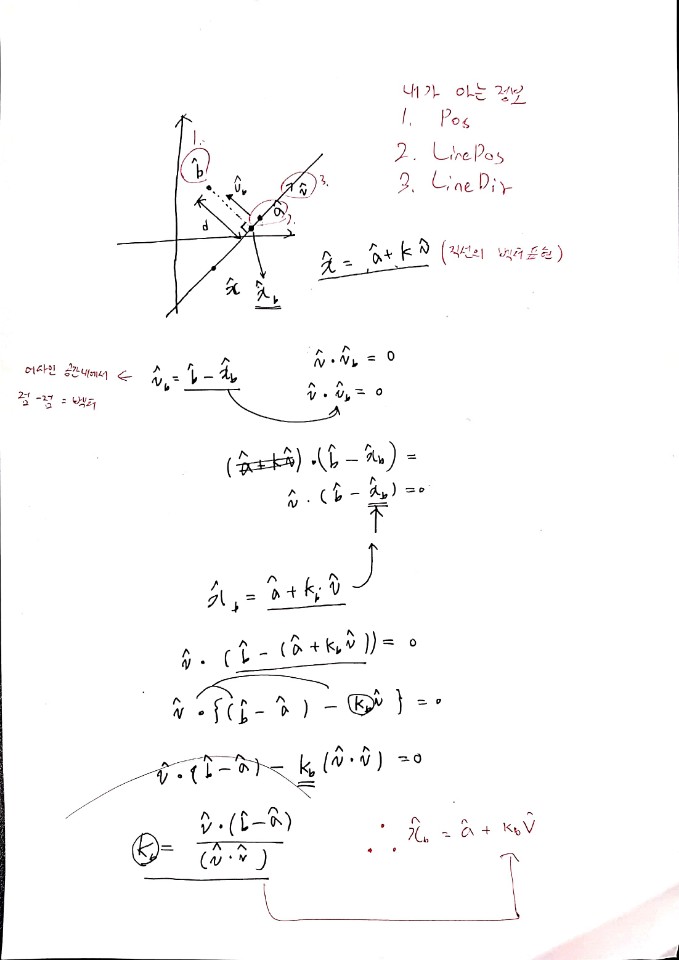 내가 아는 정보
1. Pos
2. LinePos
3. LineDir
1.
b̂
v̂_b
v̂
3.
â
2.
d
x̂
x̂_b
x̂ = â + k v̂ (직선의 벡터 표현)
어파인 공간내에서 ← v̂_b = b̂ - x̂_b
점 - 점 = 벡터
v̂ · v̂_b = 0
v̂ · v̂_b = 0
(â + k v̂) · (b̂ - x̂_b) =
v̂ · (b̂ - x̂_b) = 0
x̂_b = â + k_b · v̂
v̂ · (b̂ - (â + k_b v̂)) = 0
v̂ · {(b̂ - â) - k_b v̂} = 0
v̂ · (b̂ - â) - k_b (v̂ · v̂) = 0
k_b = v̂ · (b̂ - â) / (v̂ · v̂)
∴ x̂_b = â + k_b v̂